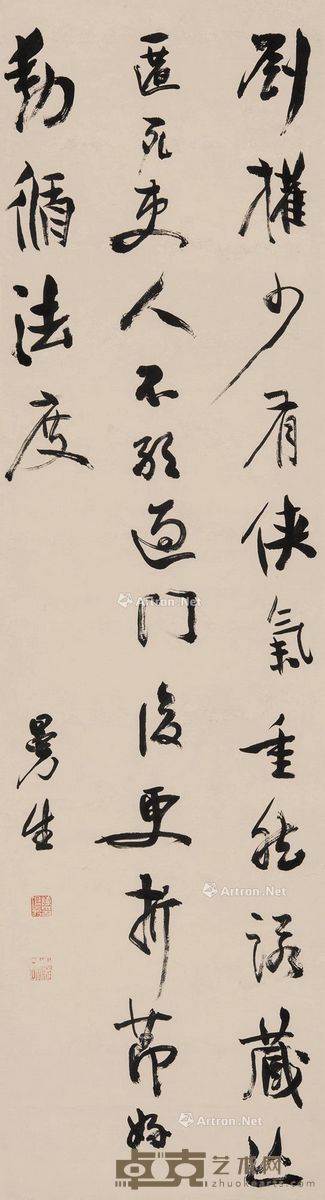 劉權少有俠氣重然諾藏亡
匿死吏人不敢過門後更折節好
動循法度
曼生
Artron.Net
Artron.Net
Artron.Net
卓克艺术网
zhuokearts.com